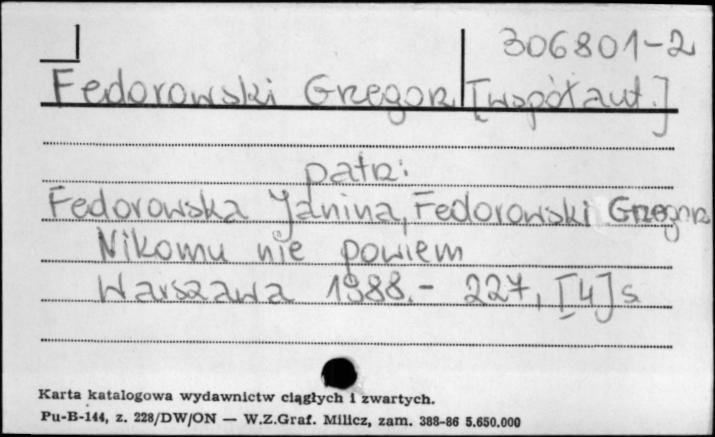 306801-2
Fedorowski Grzegorz [współaut.]
patrz:
Fedorowska Janina, Fedorowski Grzegorz
Nikomu nie powiem
Warszawa 1988.- 227, [4] s
Karta katalogowa wydawnictw ciągłych i zwartych.
Pu-B-144, z. 228/DW/ON — W.Z.Graf. Milicz, zam. 388-86 5.650.000